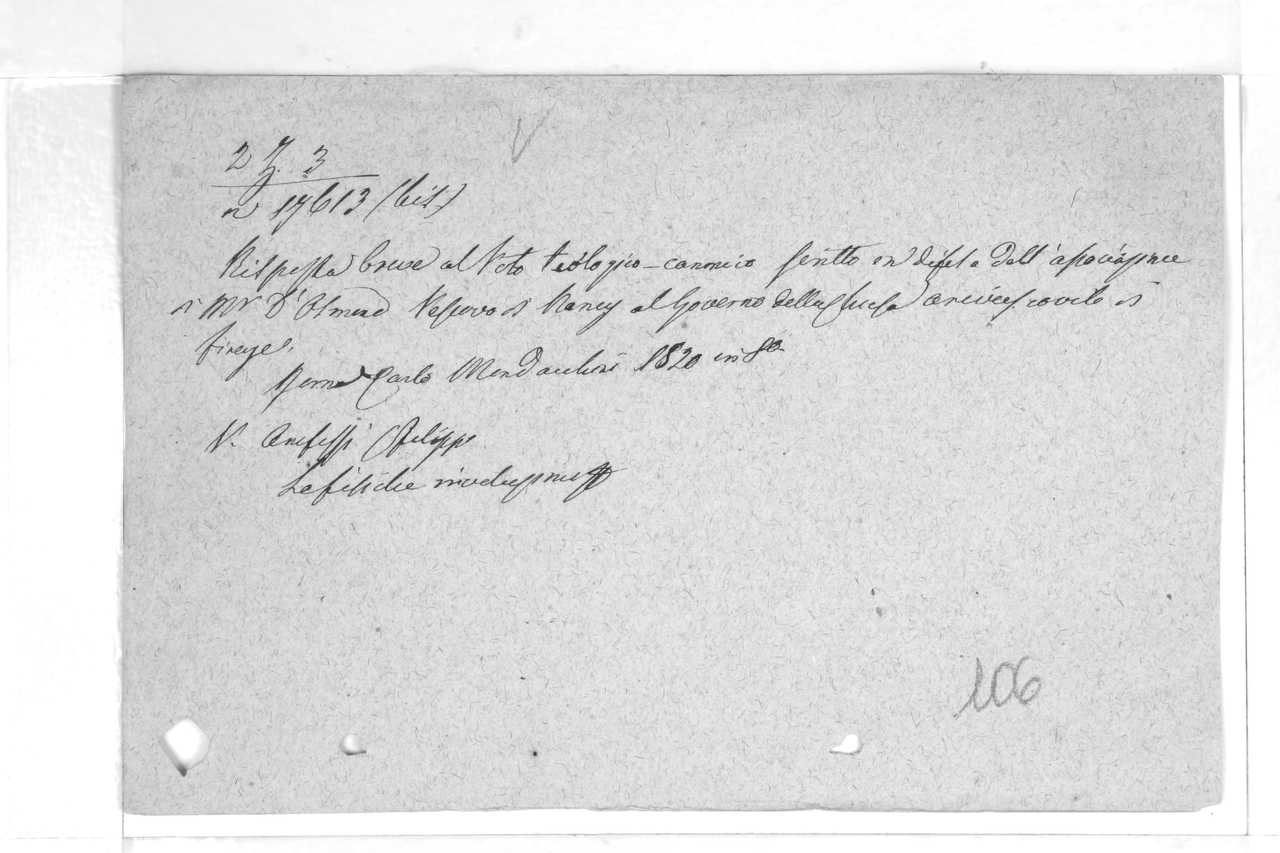 V
2 Z. 3
n 17613 (bis)
Risposta breve al Voto teologico-canonico scritto in difesa dell'
di Mr D'Osmond Vescovo di Nancy al Governo della Chiesa arcivescovile di
Firenze.
Roma Carlo Mordacchini 1820 in 8o
V. Anfossi Filippo
106